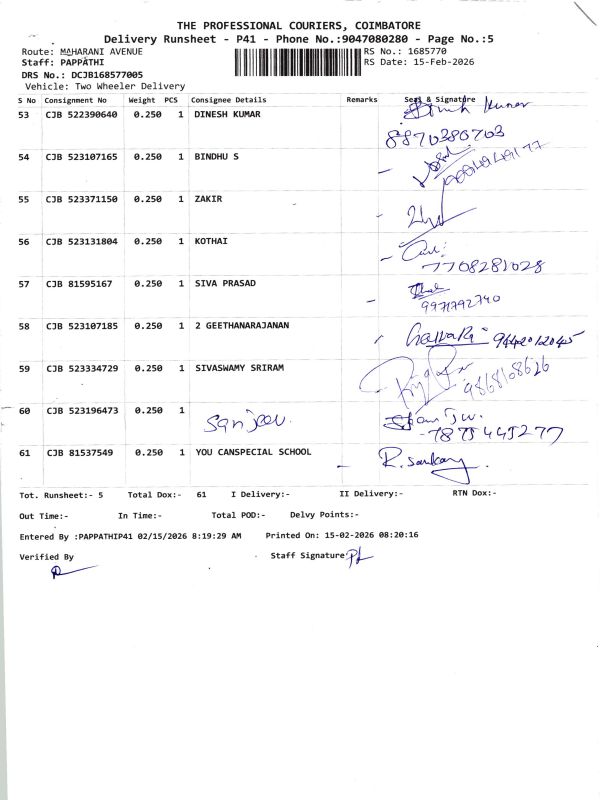 THE PROFESSIONAL COURIERS, COIMBATORE
Delivery Runsheet - P41 - Phone No.:9047080280 - Page No.:5
Route: MAHARANI AVENUE RS No.: 1685770
Staff: PAPPATHI RS Date: 15-Feb-2026
DRS No.: DCJB168577005
Vehicle: Two Wheeler Delivery
S No Consignment No Weight PCS Consignee Details Remarks Seal & Signature
53 CJB 522390640 0.250 1 DINESH KUMAR Dinesh Kumar
8870380703
54 CJB 523107165 0.250 1 BINDHU S
55 CJB 523371150 0.250 1 ZAKIR
56 CJB 523131804 0.250 1 KOTHAI
7708281028
57 CJB 81595167 0.250 1 SIVA PRASAD
9971792740
58 CJB 523107185 0.250 1 2 GEETHANARAJANAN
59 CJB 523334729 0.250 1 SIVASWAMY SRIRAM
9868108626
60 CJB 523196473 0.250 1 Sanjeev.
7875445277
61 CJB 81537549 0.250 1 YOU CANSPECIAL SCHOOL R. Sankary.
Tot. Runsheet:- 5 Total Dox:- 61 I Delivery:- II Delivery:- RTN Dox:-
Out Time:- In Time:- Total POD:- Delvy Points:-
Entered By :PAPPATHIP41 02/15/2026 8:19:29 AM Printed On: 15-02-2026 08:20:16
Verified By Staff Signature